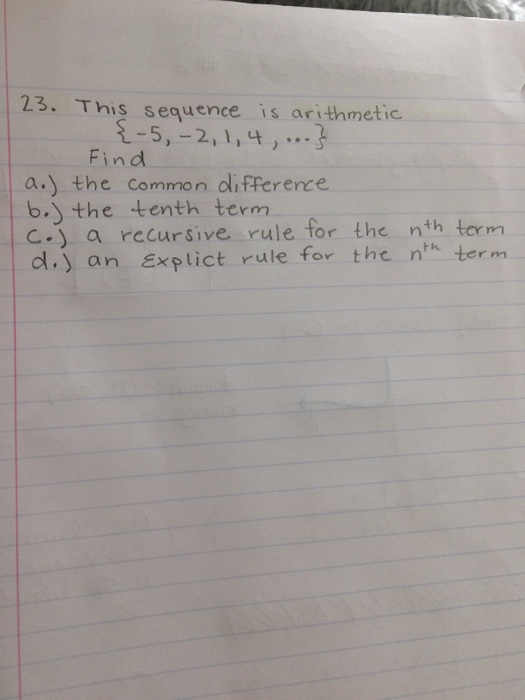 23. This sequence is arithmetic
{-5, -2, 1, 4, ...}
Find
a.) the common difference
b.) the tenth term
c.) a recursive rule for the nth term
d.) an Explict rule for the nth term